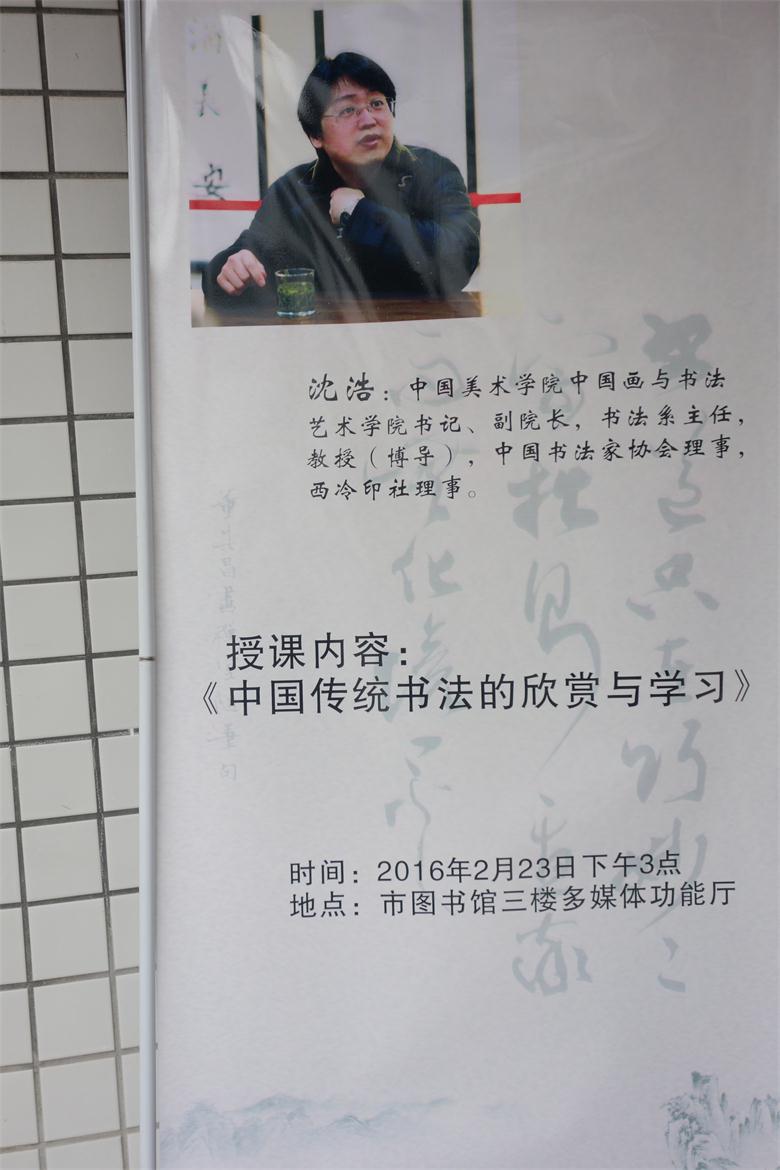 满
长
安
沈浩：中国美术学院中国画与书法
艺术学院书记、副院长，书法系主任，
教授（博导），中国书法家协会理事，
西泠印社理事。
授课内容：
《中国传统书法的欣赏与学习》
时间：2016年2月23日下午3点
地点：市图书馆三楼多媒体功能厅